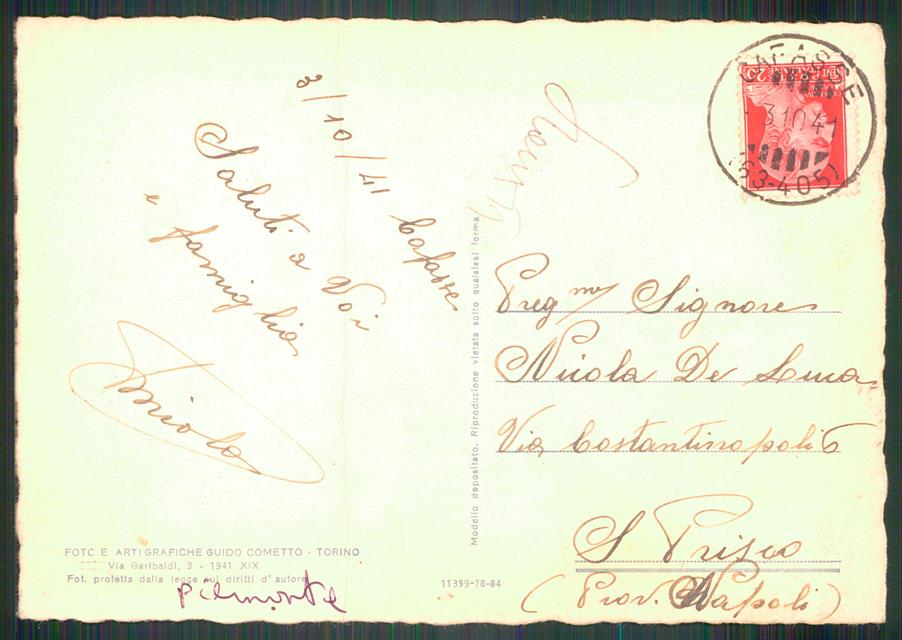 3/10/41 Cafasse
Saluti a Voi
e famiglia
CAFASSE
3 10 41
(63-405)
Preg.mo Signore
Nicola De Luca
Via Costantinopoli 6
S Prisco
(Prov. Napoli)
Modello depositato. Riproduzione vietata sotto qualsiasi forma
FOTO E ARTI GRAFICHE GUIDO COMETTO - TORINO
Via Garibaldi, 3 - 1941 XIX
Fot. protetta dalla legge sui diritti d'autore
Piemonte
11399-78-84